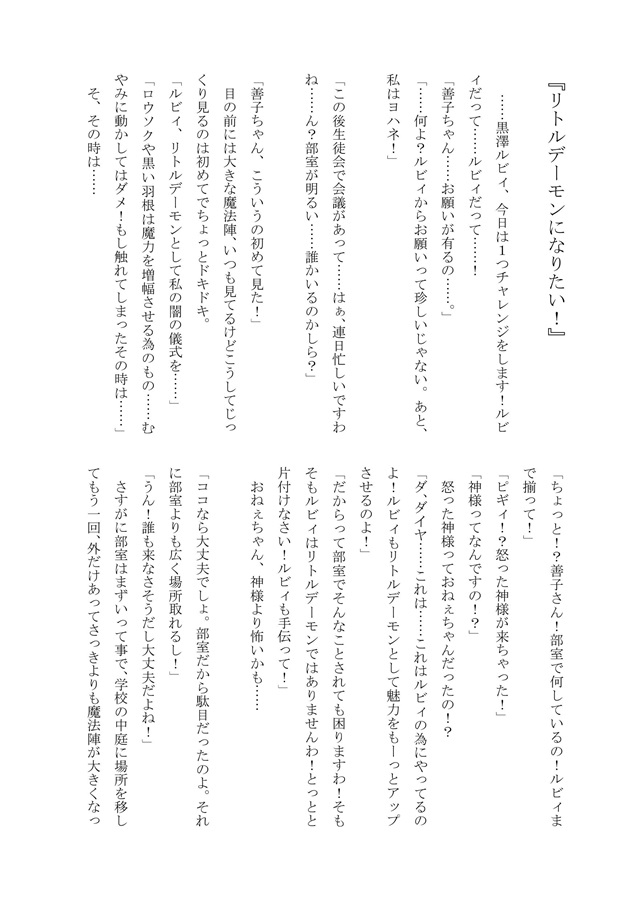 『リトルデーモンになりたい！』
……黒澤ルビィ、今日は１つチャレンジをします！ルビ
ィだって……ルビィだって……！
「善子ちゃん……お願いが有るの……。」
「……何よ？ルビィからお願いって珍しいじゃない。あと、
私はヨハネ！」
「この後生徒会で会議があって……はぁ、連日忙しいですわ
ね……ん？部室が明るい……誰かいるのかしら？」
「善子ちゃん、こういうの初めて見た！」
目の前には大きな魔法陣、いつも見てるけどこうしてじっ
くり見るのは初めてでちょっとドキドキ。
「ルビィ、リトルデーモンとして私の闇の儀式を……」
「ロウソクや黒い羽根は魔力を増幅させる為のもの……む
やみに動かしてはダメ！もし触れてしまったその時は……」
そ、その時は……
「ちょっと！？善子さん！部室で何しているの！ルビィま
で揃って！」
「ピギィ！？怒った神様が来ちゃった！」
「神様ってなんですの！？」
怒った神様っておねぇちゃんだったの！？
「ダ、ダイヤ……これは……これはルビィの為にやってるの
よ！ルビィもリトルデーモンとして魅力をもーっとアップ
させるのよ！」
「だからって部室でそんなことされても困りますわ！そも
そもルビィはリトルデーモンではありませんわ！とっとと
片付けなさい！ルビィも手伝って！」
おねぇちゃん、神様より怖いかも……
「ココなら大丈夫でしょ。部室だから駄目だったのよ。それ
に部室よりも広く場所取れるし！」
「うん！誰も来なさそうだし大丈夫だよね！」
さすがに部室はまずいって事で、学校の中庭に場所を移し
てもう一回、外だけあってさっきよりも魔法陣が大きくなっ